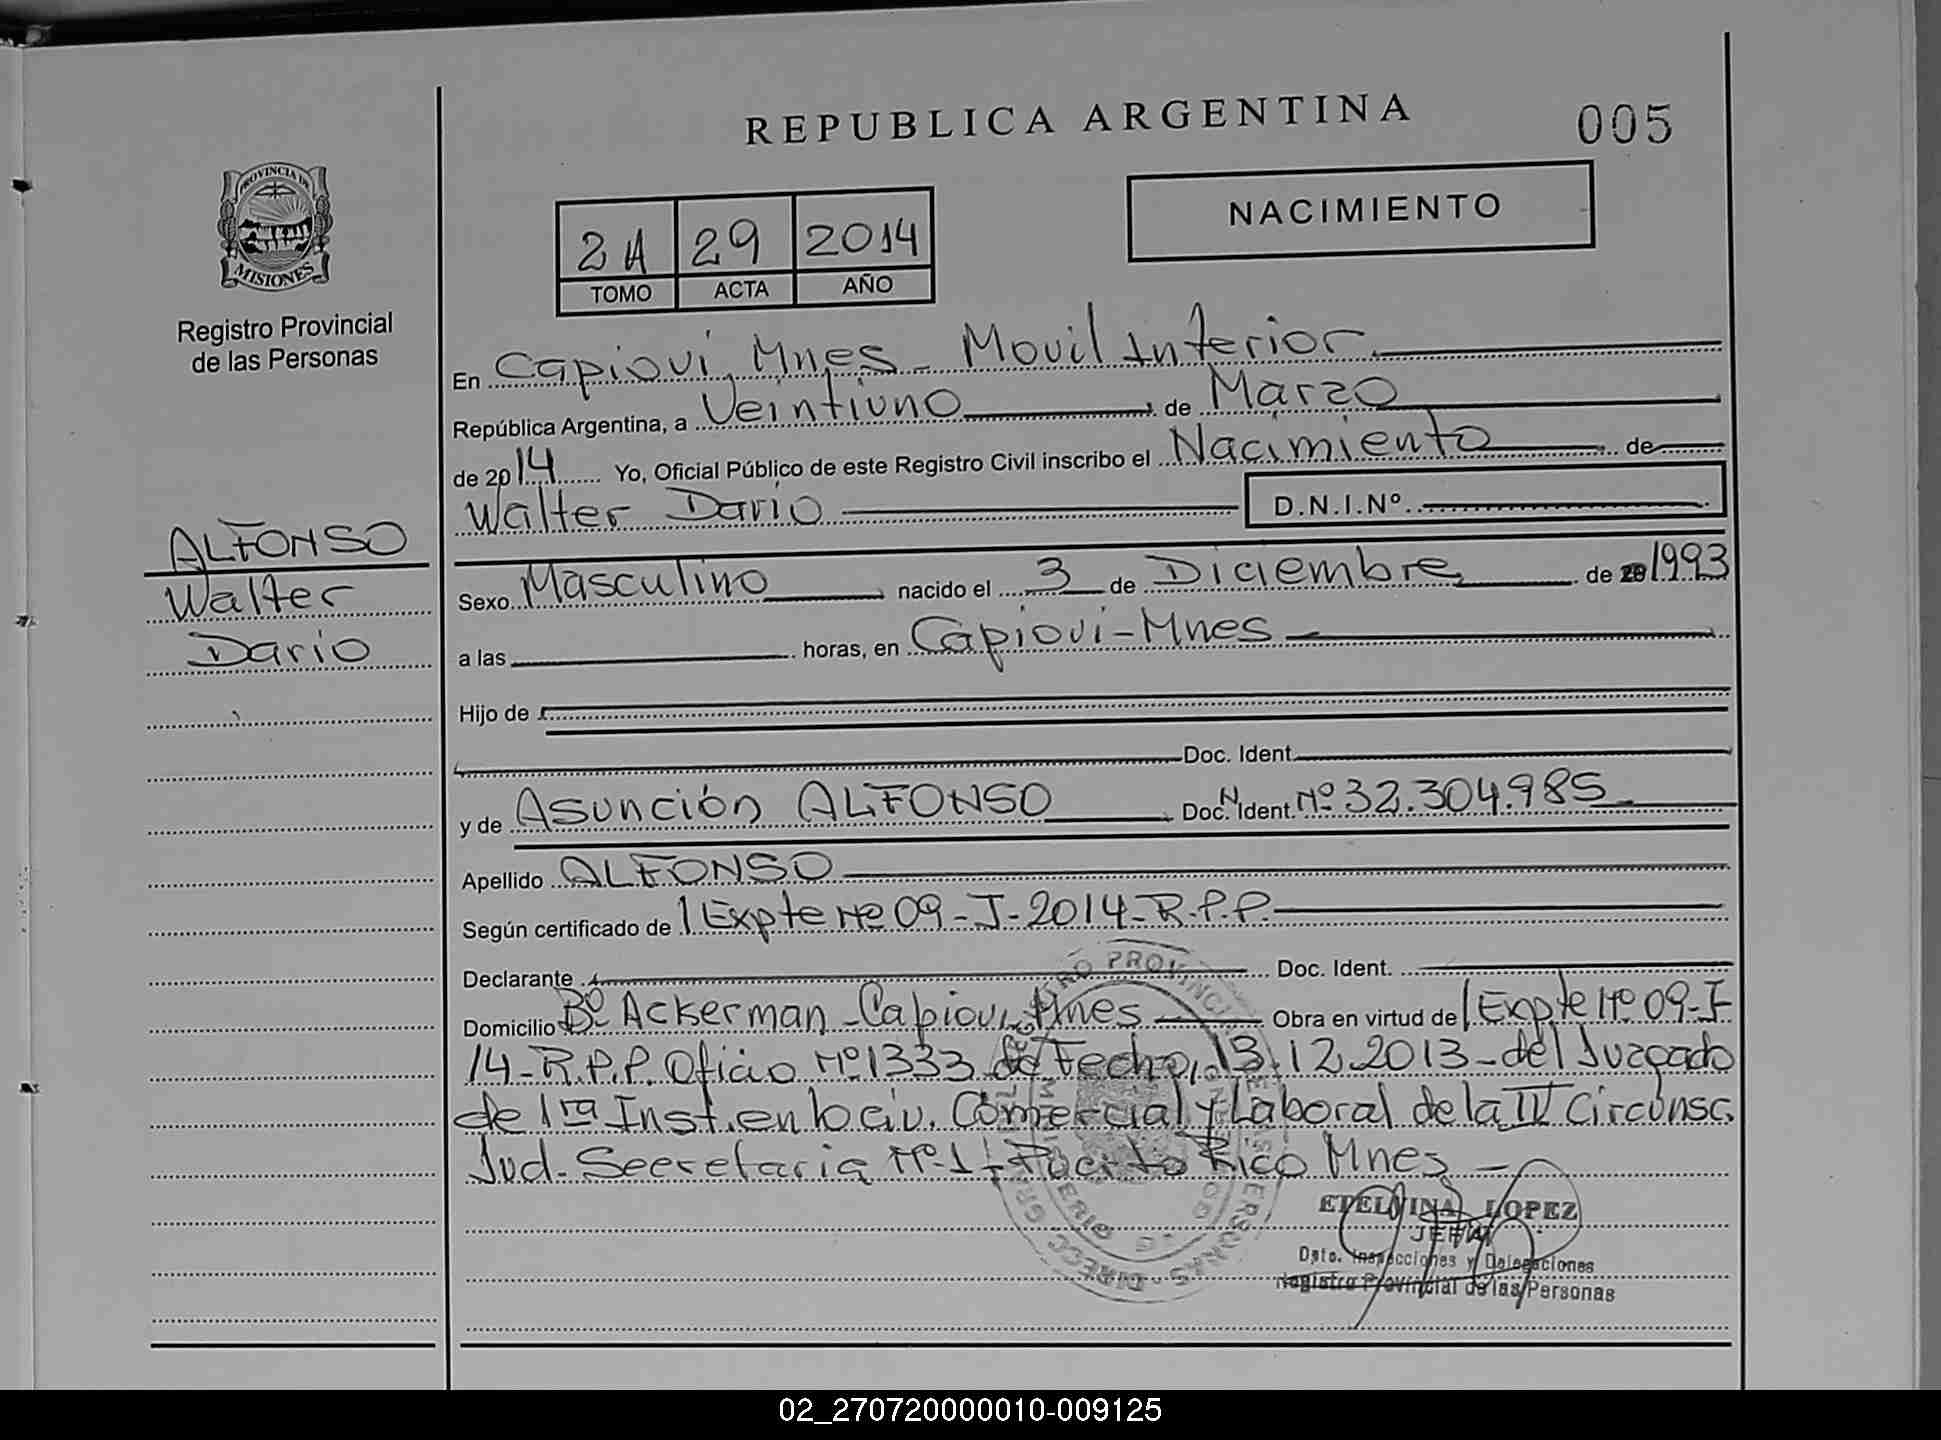 REPUBLICA ARGENTINA
005
PROVINCIA DE
MISIONES
Registro Provincial
de las Personas
NACIMIENTO
2A 29 2014
TOMO ACTA AÑO
En Capioví, Mnes - Movil Interior
República Argentina, a Veintiuno de Marzo
de 2014 Yo, Oficial Público de este Registro Civil inscribo el Nacimiento de
Walter Dario D.N.I.Nº
ALFONSO
Walter
Dario
Sexo Masculino nacido el 3 de Diciembre de 1993
a las horas, en Capiovi-Mnes
Hijo de
Doc. Ident.
y de Asunción ALFONSO Doc. N Ident. Nº 32.304.985
Apellido ALFONSO
Según certificado de Expte Nº 09-J-2014-R.P.P.
Declarante Doc. Ident.
Domicilio Bº Ackerman - Capiovi, Mnes Obra en virtud de Expte Nº 09-J-
14-R.P.P. Oficio Nº 1333 de Fecha, 13.12.2013 - del Juzgado
de 1ra Inst. en lo civ. Comercial y Laboral de la IV Circunsc.
Jud. Secretaria Nº 1 - Puerto Rico Mnes
ETELVINA LOPEZ
JEFA
Dpto. Inspecciones y Delegaciones
Registro Provincial de las Personas
02_270720000010-009125